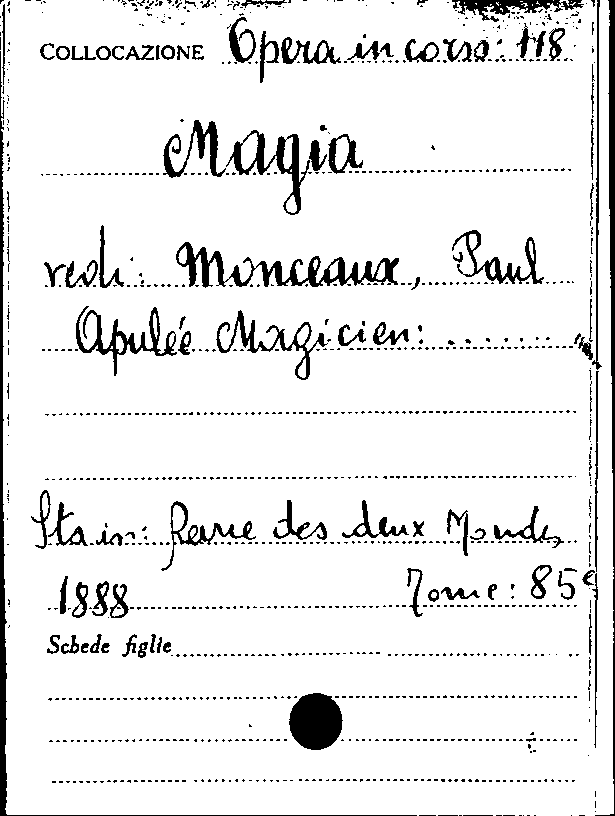 COLLOCAZIONE Opera in corso: 118
Magia
vedi: Monceaux, Paul
Apulée Magicien: .......
Sta in: Revue des deux Mondes
1888 Tome: 85e
Schede figlie